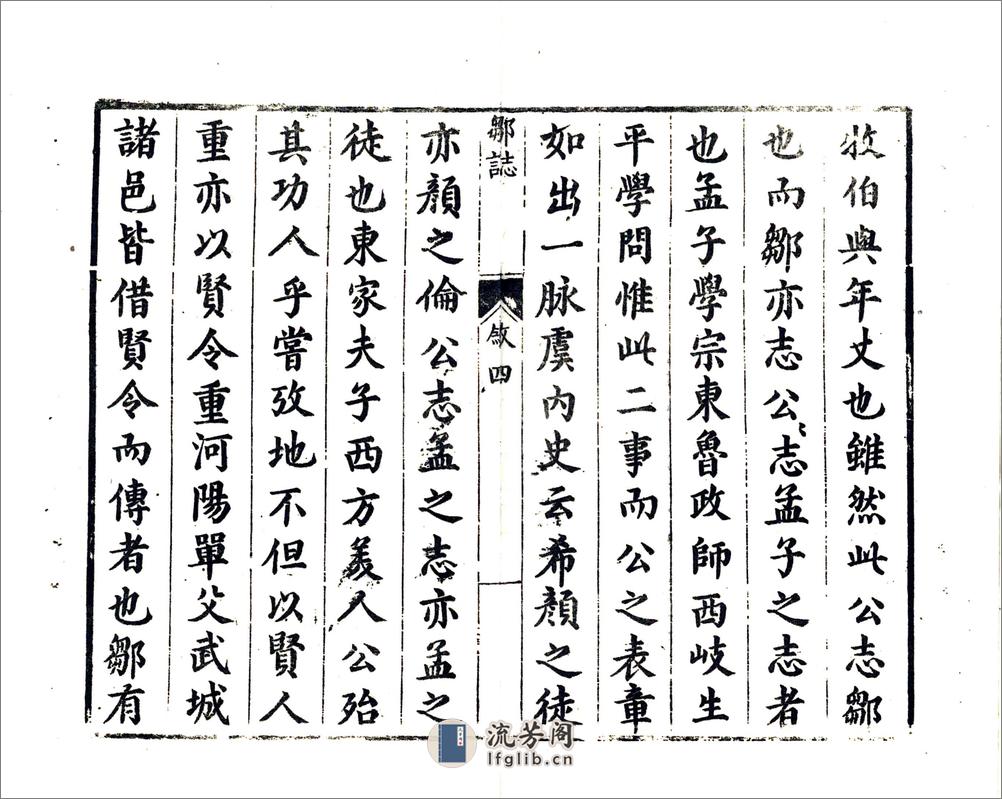 牧伯與年丈也雖然此公志鄒
也而鄒亦志公〻志孟子之志者
也孟子學宗東魯政師西岐生
平學問惟此二事而公之表章
如出一脉虞内史云希顔之徒
鄒誌
敘四
亦顔之倫公志孟之志亦孟之
徒也東家夫子西方美人公殆
其功人乎嘗攷地不但以賢人
重亦以賢令重河陽單父武城
諸邑皆借賢令而傳者也鄒有
流芳阁
lfglib.cn